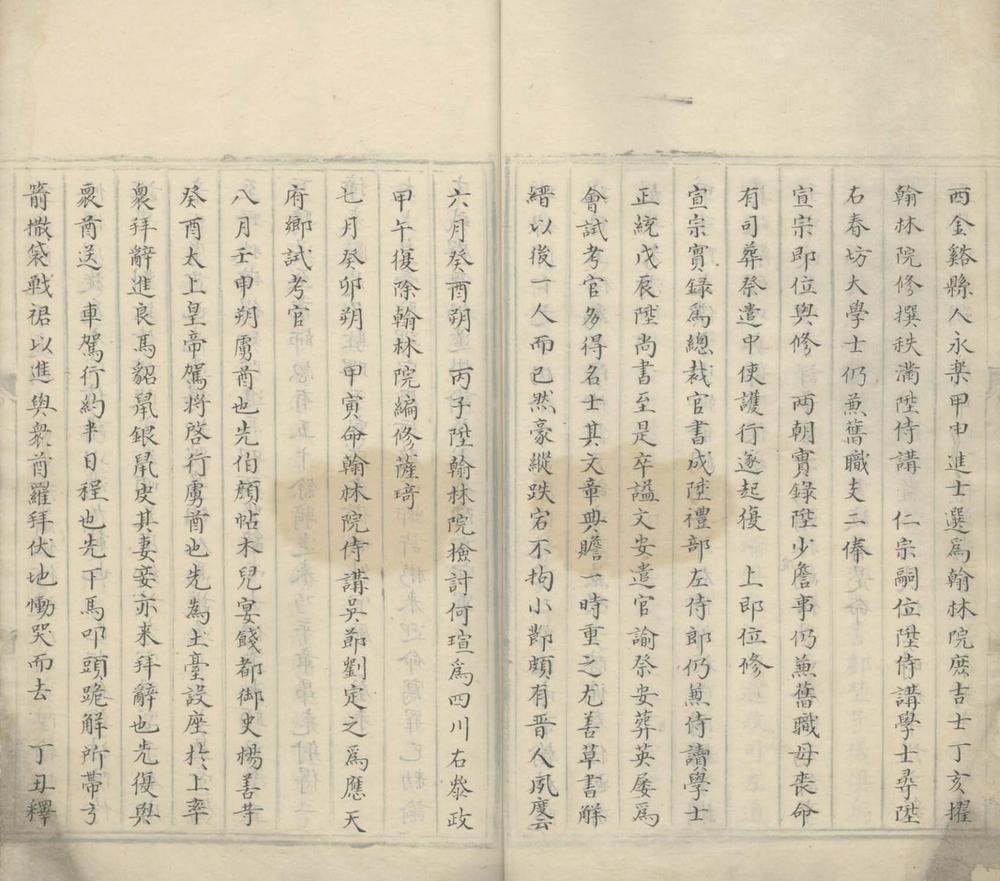 西金谿縣人永樂甲申進士選爲翰林院庶吉士丁亥擢
翰林院修撰秩滿陞侍講 仁宗嗣位陞侍講學士尋陞
右春坊大學士仍兼舊職支二俸
宣宗即位與修 兩朝實録陞少詹事仍兼舊職母喪命
有司葬祭遣中使護行遂起復 上即位修
宣宗實録爲總裁官書成陞禮部左侍郎仍兼侍讀學士
正統戊辰陞尚書至是卒謚文安遣官諭祭安葬英屡爲
會試考官多得名士其文章典贍一時重之尤善草書解
縉以後一人而已然豪縱跌宕不拘小節頗有晋人風度云
六月癸酉朔 丙子陞翰林院檢討何瑄爲四川右叅政
甲午復除翰林院編修薩琦
七月癸卯朔 甲寅命翰林院侍講吳節劉定之爲應天
府鄉試考官
八月壬申朔虜酋也先伯顔帖木兒宴餞都御史楊善等
癸酉太上皇帝駕將啓行虜酋也先為土臺設座扵上率
衆拜辭進良馬貂鼠銀鼠皮其妻妾亦来拜辭也先復與
衆酋送 車駕行約半日程也先下馬叩頭跪解所帶弓
箭撒袋戦裙以進與衆酋羅拜伏地慟哭而去 丁丑釋